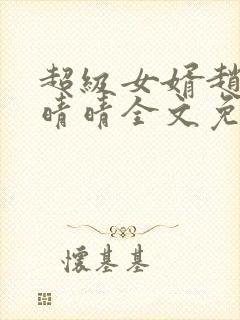 超級女婿趙
晴晴全文免
懷基基